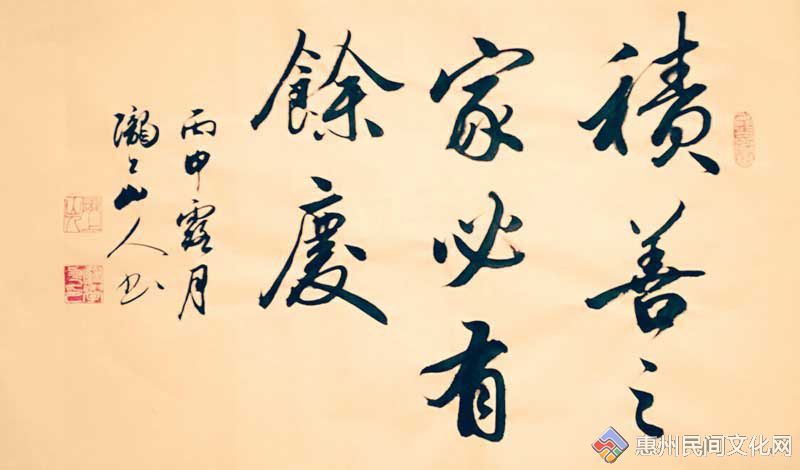 積善之
家必有
餘慶
丙申露月
隴上山人书
惠州民间文化网